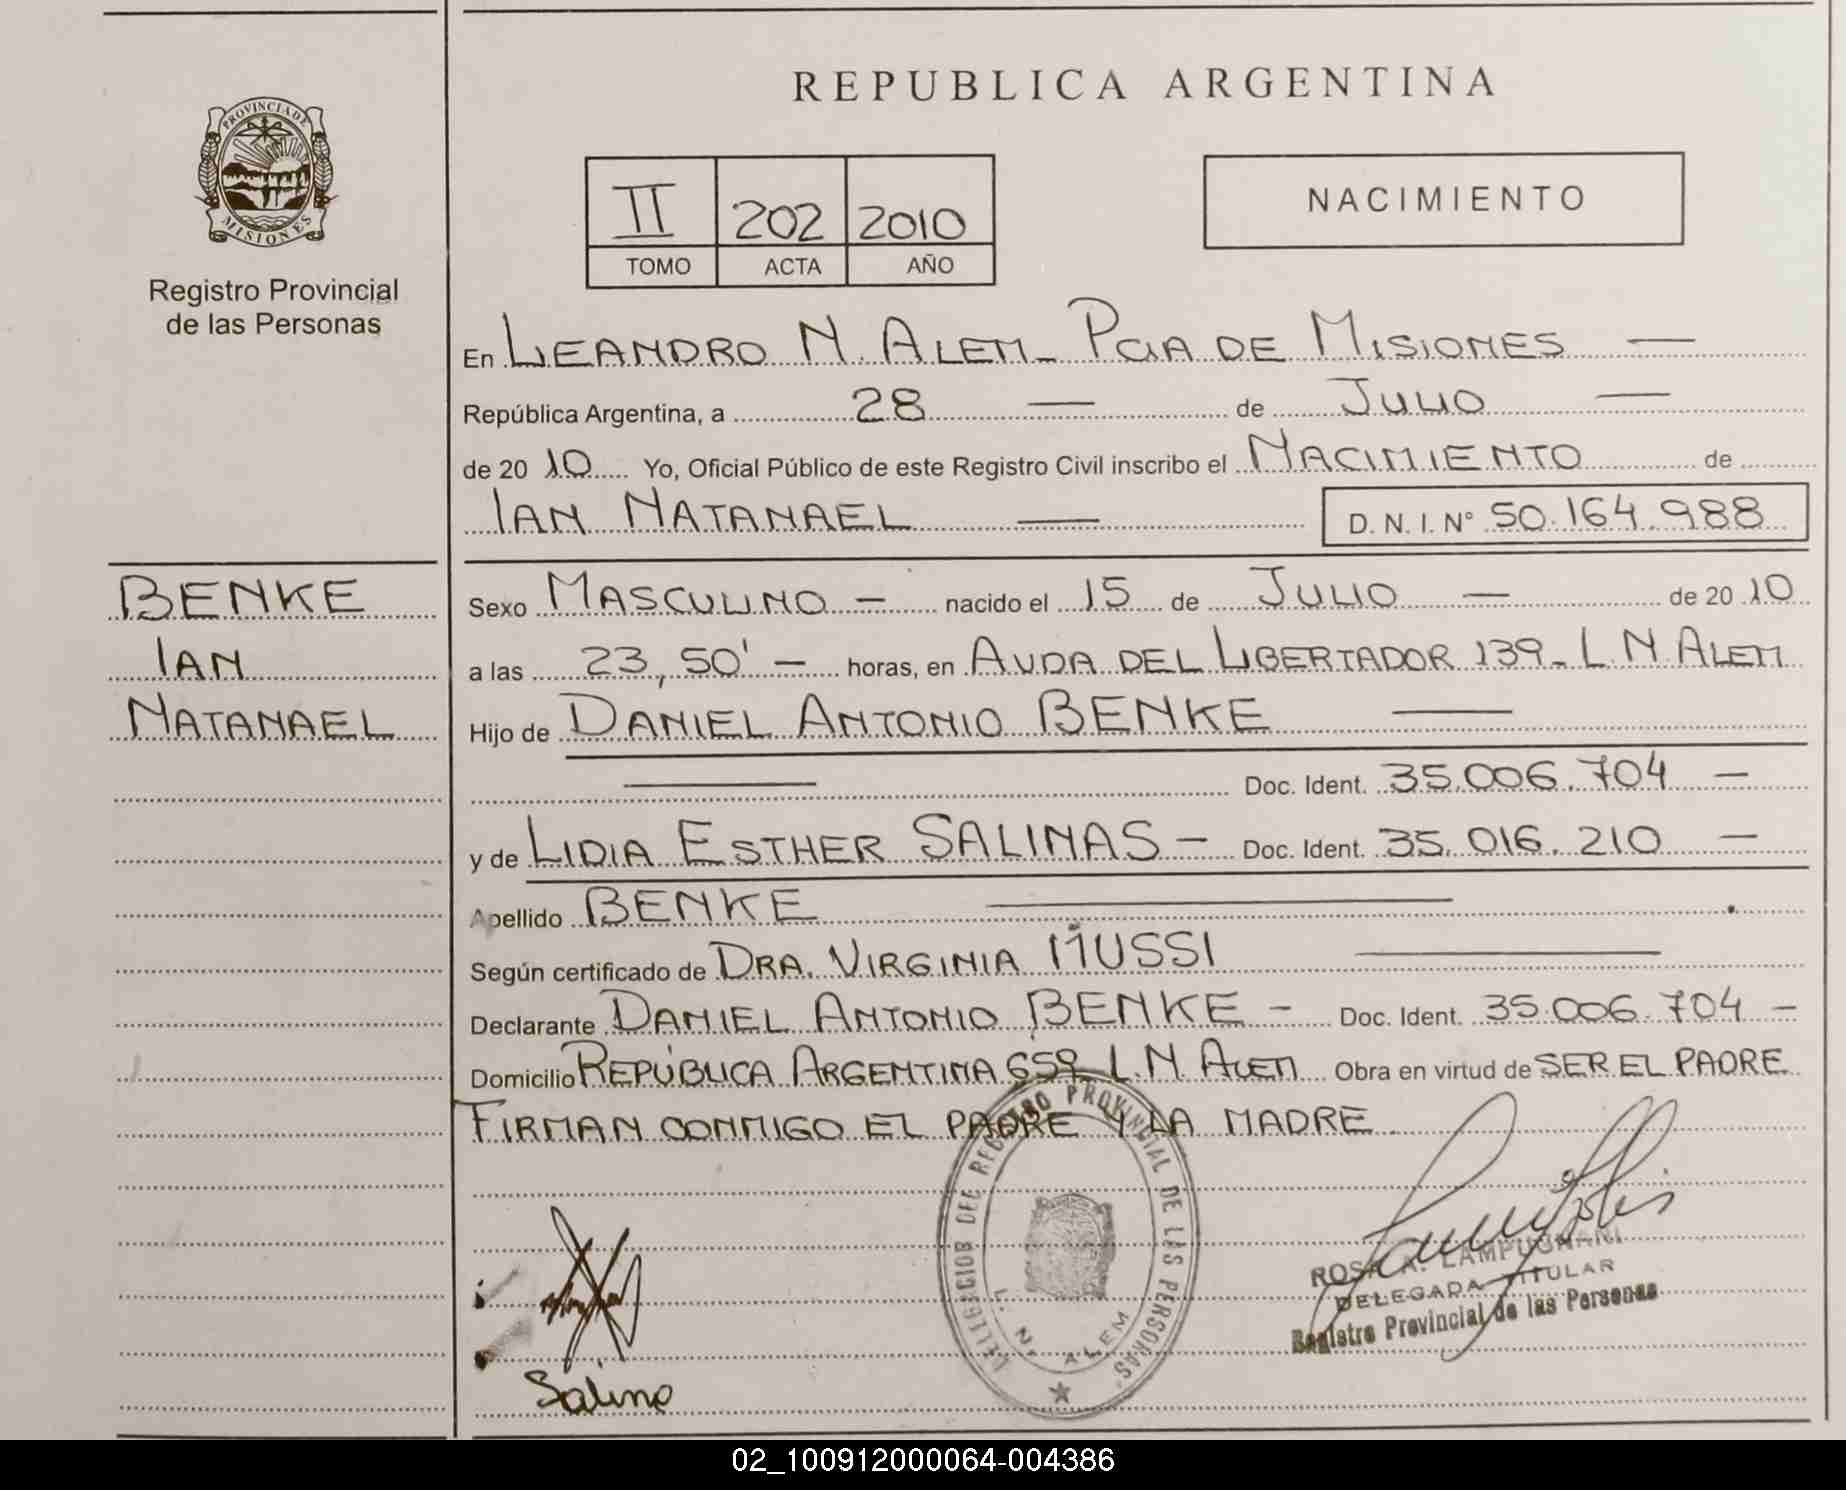 REPUBLICA ARGENTINA
PROVINCIA DE
MISIONES
Registro Provincial
de las Personas
II 202 2010
TOMO ACTA AÑO
NACIMIENTO
En LEANDRO N. ALEM - PCIA DE MISIONES —
República Argentina, a 28 — de JULIO —
de 20 10 Yo, Oficial Público de este Registro Civil inscribo el NACIMIENTO de
IAN NATANAEL — D. N. I. N° 50.164.988
BENKE
IAN
NATANAEL
Sexo MASCULINO - nacido el 15 de JULIO — de 20 10
a las 23,50' - horas, en AVDA DEL LIBERTADOR 139 - L. N ALEM
Hijo de DANIEL ANTONIO BENKE —
— Doc. Ident. 35.006.704 —
y de LIDIA ESTHER SALINAS - Doc. Ident. 35.016.210 —
Apellido BENKE —
Según certificado de DRA. VIRGINIA MUSSI —
Declarante DANIEL ANTONIO BENKE - Doc. Ident. 35.006.704 -
Domicilio REPÚBLICA ARGENTINA 659 L.N. ALEM Obra en virtud de SER EL PADRE
FIRMAN CONMIGO EL PADRE Y LA MADRE
DELEGACION DEL REGISTRO PROVINCIAL DE LAS PERSONAS
L. N. ALEM
ROSA A. LAMPUGNANI
DELEGADA TITULAR
Registro Provincial de las Personas
02_100912000064-004386